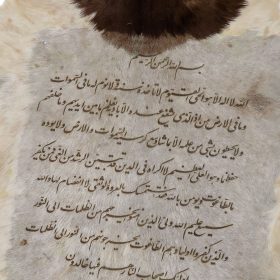 بسم الله الرحمن الرحیم
الله لا اله الا هو الحی القیوم لا تأخذه سنة و لا نوم له ما فی السموات
و ما فی الارض من ذا الذی یشفع عنده الا باذنه یعلم ما بین ایدیهم و ما خلفهم
ولا یحیطون بشی من علمه الا بما شاء وسع کرسیه السموات و الارض ولا یؤده
حفظهما و هو العلی العظیم لا اکراه فی الدین قد تبین الرشد من الغی فمن یکفر
بالطاغوت و یؤمن بالله فقد استمسک بالعروة الوثقی لا انفصام لها والله
سمیع علیم الله ولی الذین آمنوا یخرجهم من الظلمات الی النور
والذین کفروا اولیاؤهم الطاغوت یخرجونهم من النور الی الظلمات
اولئک اصحاب النار هم فیها خالدون